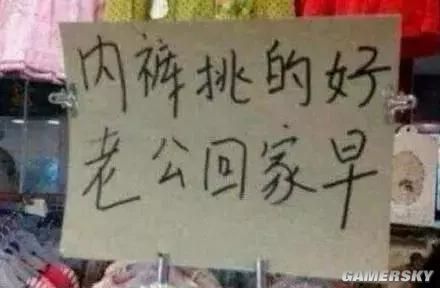 内裤挑的好
老公回家早
GAMERSKY